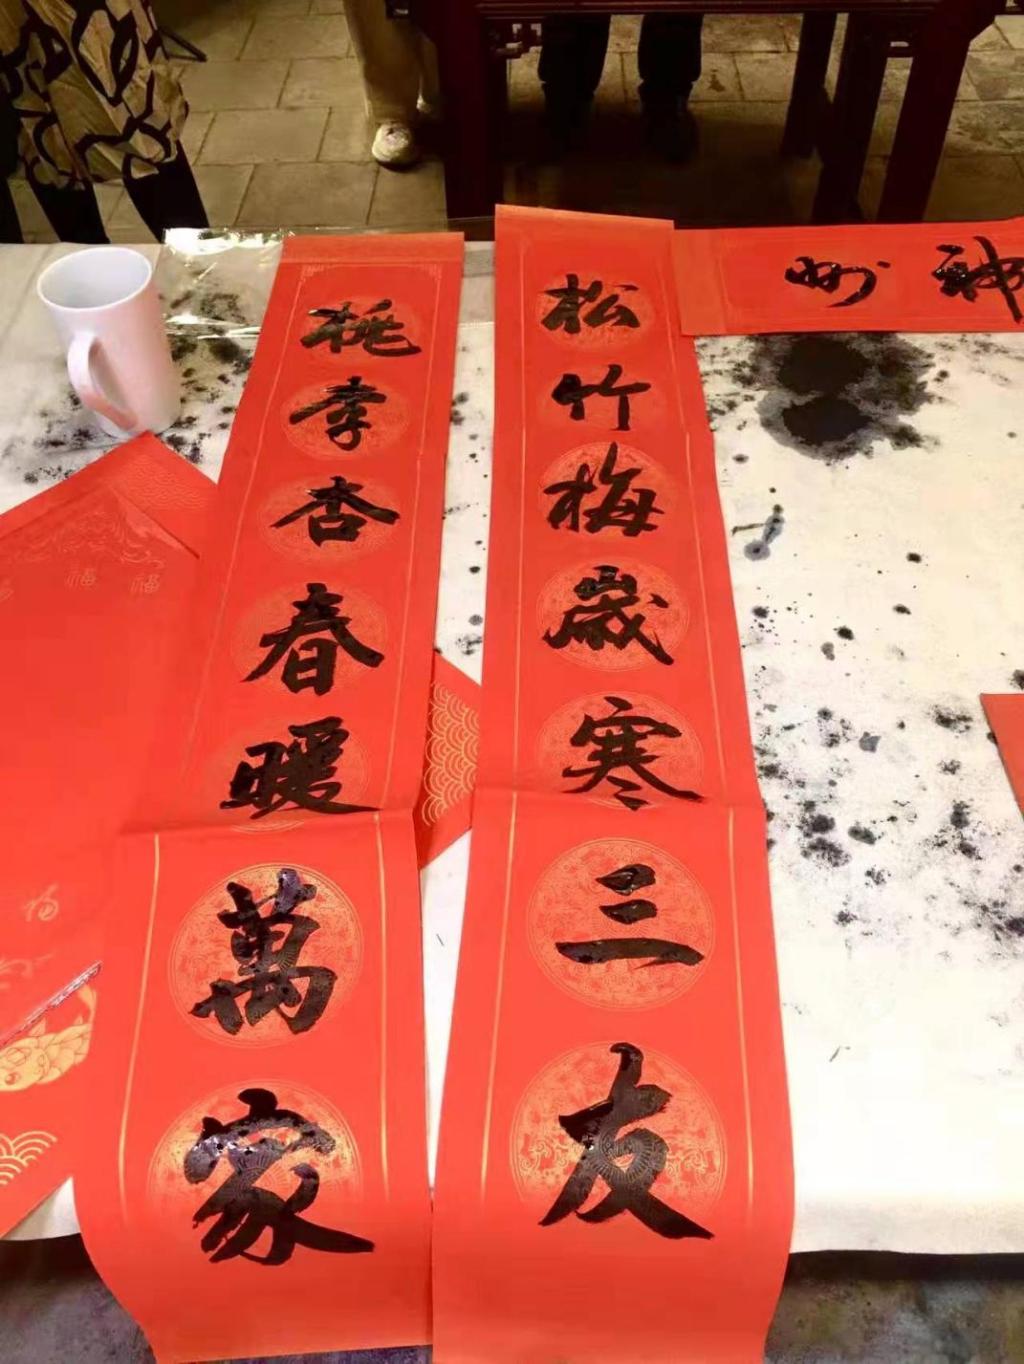 松竹梅歲寒三友
桃李杏春暖萬家
神州
福
福
福